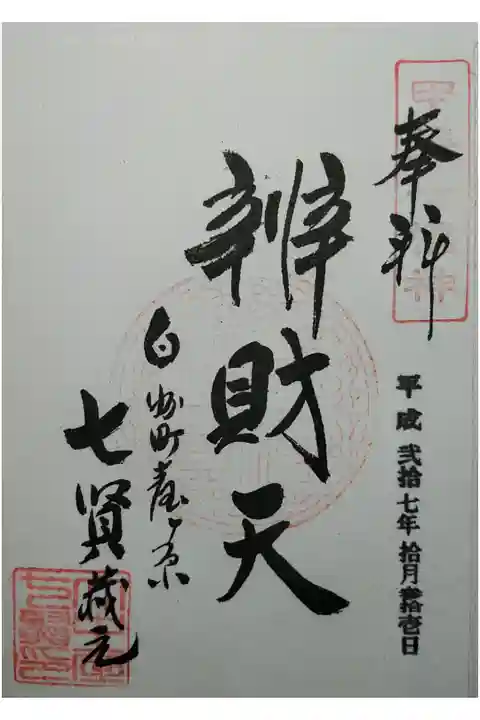 奉拝
平成 弐拾七年 拾月 参拾壱日
辨財天
白州町臺ヶ原
七賢蔵元